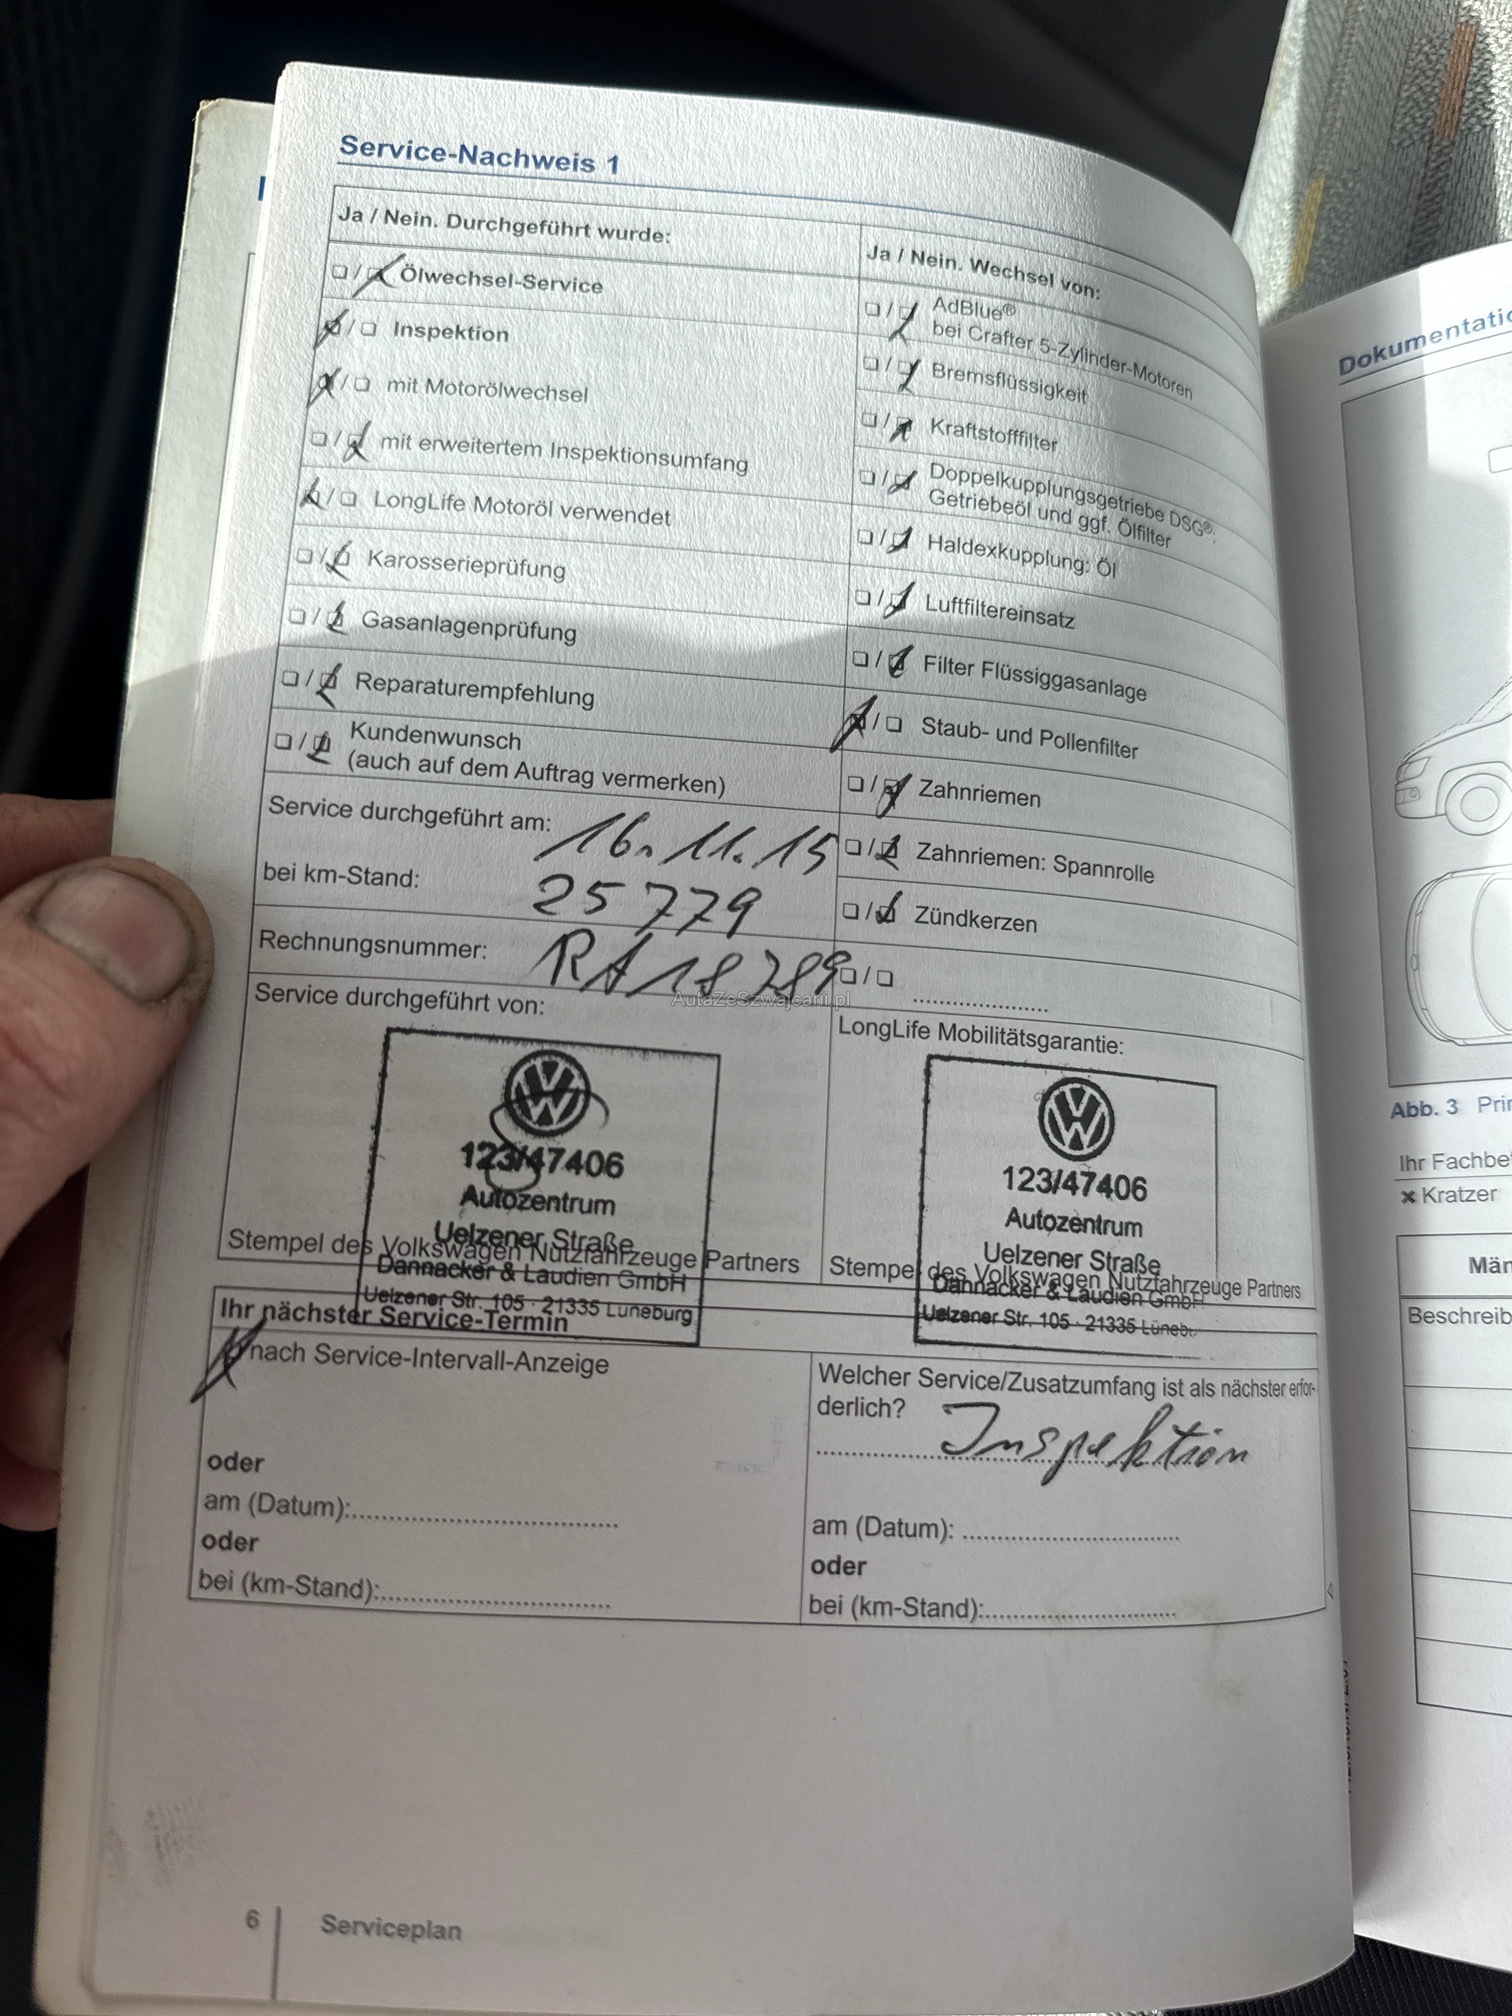 Service-Nachweis 1
Ja / Nein. Durchgeführt wurde:
Ölwechsel-Service
Inspektion
mit Motorölwechsel
mit erweitertem Inspektionsumfang
LongLife Motoröl verwendet
Karosserieprüfung
Gasanlagenprüfung
Reparaturempfehlung
Kundenwunsch
(auch auf dem Auftrag vermerken)
Service durchgeführt am: 16.11.15
bei km-Stand: 25779
Rechnungsnummer: RA18289
Service durchgeführt von:
123/47406
Autozentrum
Uelzener Straße
Dannacker & Laudien GmbH
Uelzener Str. 105 · 21335 Lüneburg
Stempel des Volkswagen Nutzfahrzeuge Partners
Ja / Nein. Wechsel von:
AdBlue®
bei Crafter 5-Zylinder-Motoren
Bremsflüssigkeit
Kraftstofffilter
Doppelkupplungsgetriebe DSG®:
Getriebeöl und ggf. Ölfilter
Haldexkupplung: Öl
Luftfiltereinsatz
Filter Flüssiggasanlage
Staub- und Pollenfilter
Zahnriemen
Zahnriemen: Spannrolle
Zündkerzen
AutaZeSzwajcarii.pl
LongLife Mobilitätsgarantie:
123/47406
Autozentrum
Uelzener Straße
Dannacker & Laudien GmbH
Uelzener Str. 105 · 21335 Lünebu
Stempel des Volkswagen Nutzfahrzeuge Partners
Ihr nächster Service-Termin
nach Service-Intervall-Anzeige
oder
am (Datum):
oder
bei (km-Stand):
Welcher Service/Zusatzumfang ist als nächster erfor-
derlich?
Inspektion
am (Datum):
oder
bei (km-Stand):
6 Serviceplan
Dokumentatio
Abb. 3 Prin
Ihr Fachbe
Kratzer
Män
Beschreib